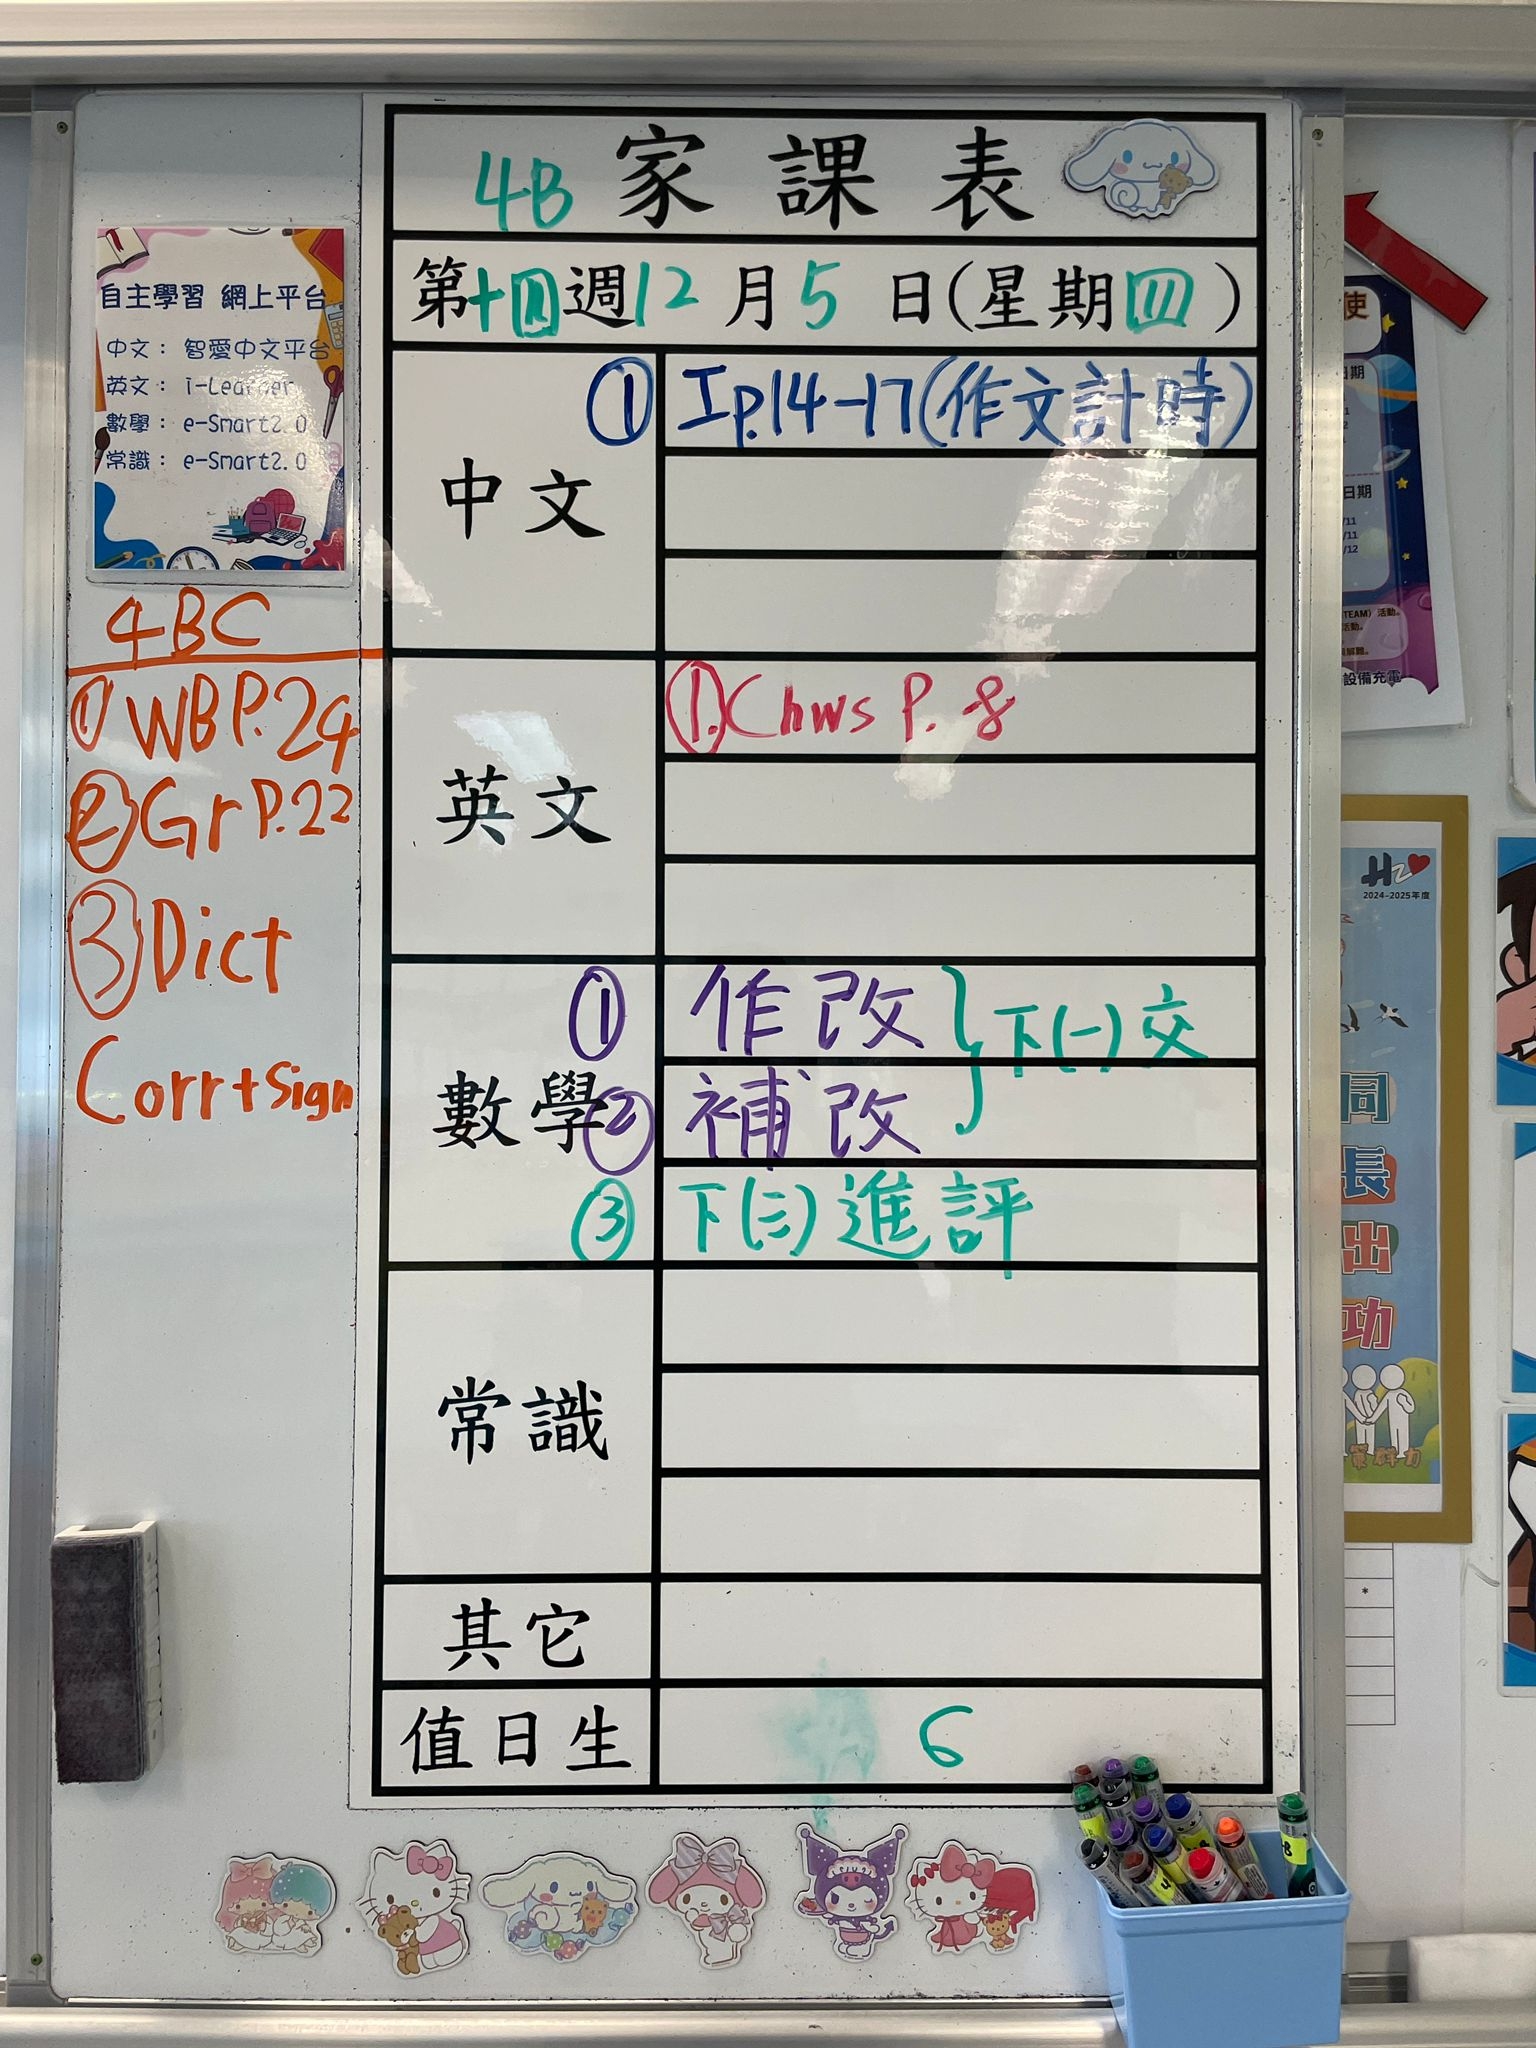 4B 家課表
第十四週12月5日(星期四)
中文
① 工p.14-17(作文計時)
英文
①.Chws P.8
數學
① 作改
② 補改
} 下(一)交
③ 下(三)進評
常識
其它
值日生
6
自主學習 網上平台
中文： 智愛中文平台
英文： i-Learner
數學： e-Smart2.0
常識： e-Smart2.0
4BC
① WB P.24
② Gr P.22
③ Dict
Corr+Sign
使
日期
日期
/11
/11
/12
TEAM）活動。
活動。
設備充電
2024-2025年度
同
長
出
功
策群力